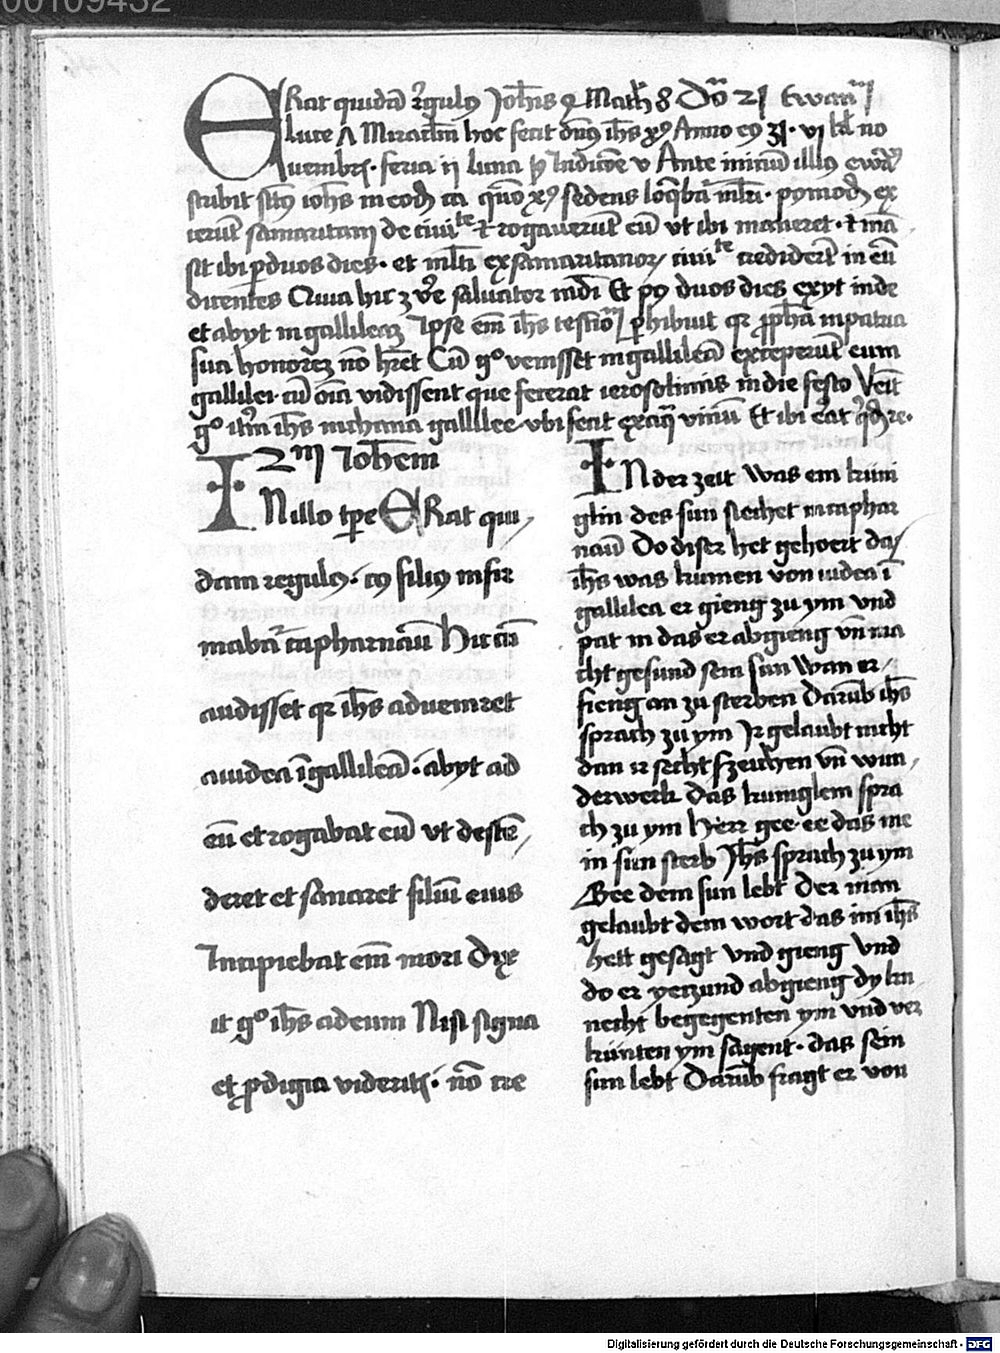 00109432
ERat quidā r̄gulus Joh̄is 4 Math̄ 8 Dō 21 Ewan
luce Λ Miraclm̄ hoc fecit dn̄s ih̄s xp̄s Anno eꝰ 31 · vi kl̄ no
uembris · feria ij luna Indictōe v Ante iniciū illiꝰ ewā
scribit sctūs ioh̄s in eodē ca quō xp̄s sedens loq̄batᷣ ml̄ri · p̄ꝰmodū ex
ierūt samaritani de ciuite et rogauerūt eū vt ibi maneret · et mā
sit ibi ꝑ duos dies · et ml̄ti ex samaritanorꝫ ciuite crediderūt in eū
dicentes Quia hic ꝫ v̄e saluator mūdi Et pꝰ duos dies exyt inde
et abyt in gallileaꝫ Ipse em̄ ih̄s testiōm ꝑhibuit qꝛ ꝓph̄a in patria
sua honoreꝫ nō hꝫet Cū gͦ venisset in gallileā exceperūt eum
gallilei · cū oīa vidissent que fecerat ierosolimis in die festo Veīt
gͦ itꝫm ih̄s in chana gallilee vbi fecit ex aq̄ vinū Et ibi er̄at q̄d re ·
2m Joh̄em
IN illo tꝑe ERat qui,
dam regulꝰ · cꝰ filiꝰ infir
mabatᷣ capharnaū Hic cū
audisset qꝛ ih̄s adueniret
a iudea ī gallileā · abyt ad
eū et rogabat eū vt descē,
deret et sanaret filiū eius
Incipiebat em̄ mori Dixe
it gͦ ih̄s ad eum Nisi signa
et ꝓdigia videritꝭ · nō cre
IN der zeit was ein kuni
glin des sun siechet in caphar
naū Do diser het gehoert das
ih̄s was kumen von iudea ī
gallilea er gieng zu ym vnd
pat in das er abgieng vn̄ ma
cht gesund sein sun Wan er,
fieng an zu sterben Darūb ih̄s
sprach zu ym Ir gelaubt nicht
dan ir secht szeichen vn̄ wun,
derwerk Das kuniglein spra
ch zu ym Herr gee · ee das me
in sun sterb Jh̄s sprach zu ym
Gee dein sun lebt Der man
gelaubt dem wort das im ih̄s
hett gesagt vnd gieng Vnd
do er yetzund abgieng dy kn
necht begegenten ym vnd ver
künten ym sagent · das sein
sun lebt Darūb fragt er von
Digitalisierung gefördert durch die Deutsche Forschungsgemeinschaft - DFG